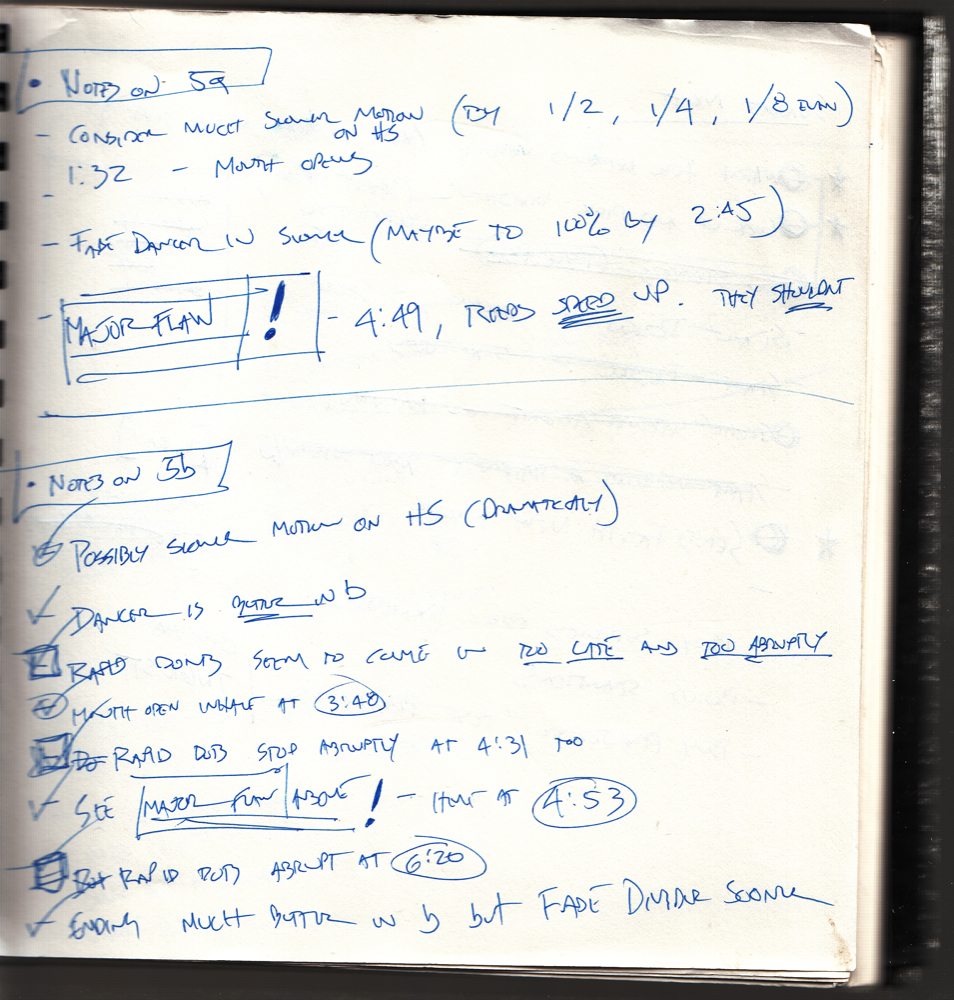 • NOTES ON 5a
- CONSIDER MUCH SLOWER MOTION (TRY 1/2, 1/4, 1/8 EVEN)
ON HS
- 1:32 - MOUTH OPENS
- FADE DANCER IN SLOWER (MAYBE TO 100% BY 2:45)
- MAJOR FLAW ! - 4:49, SPEED UP. THEY SHOULDNT
• NOTES ON 5b
POSSIBLY SLOWER MOTION ON HS (DRAMATICALLY)
✓ DANCER IS BETTER IN b
RAPID DOTS SEEM TO COME IN TOO LATE AND TOO ABRUPTLY
MOUTH OPEN INHALE AT 3:48
RAPID DOTS STOP ABRUPTLY AT 4:31 TOO
✓ SEE MAJOR FLAW ABOVE ! - HERE AT 4:53
RAPID DOTS ABRUPT AT 6:20
✓ ENDING MUCH BETTER IN b but FADE DANCER SOONER